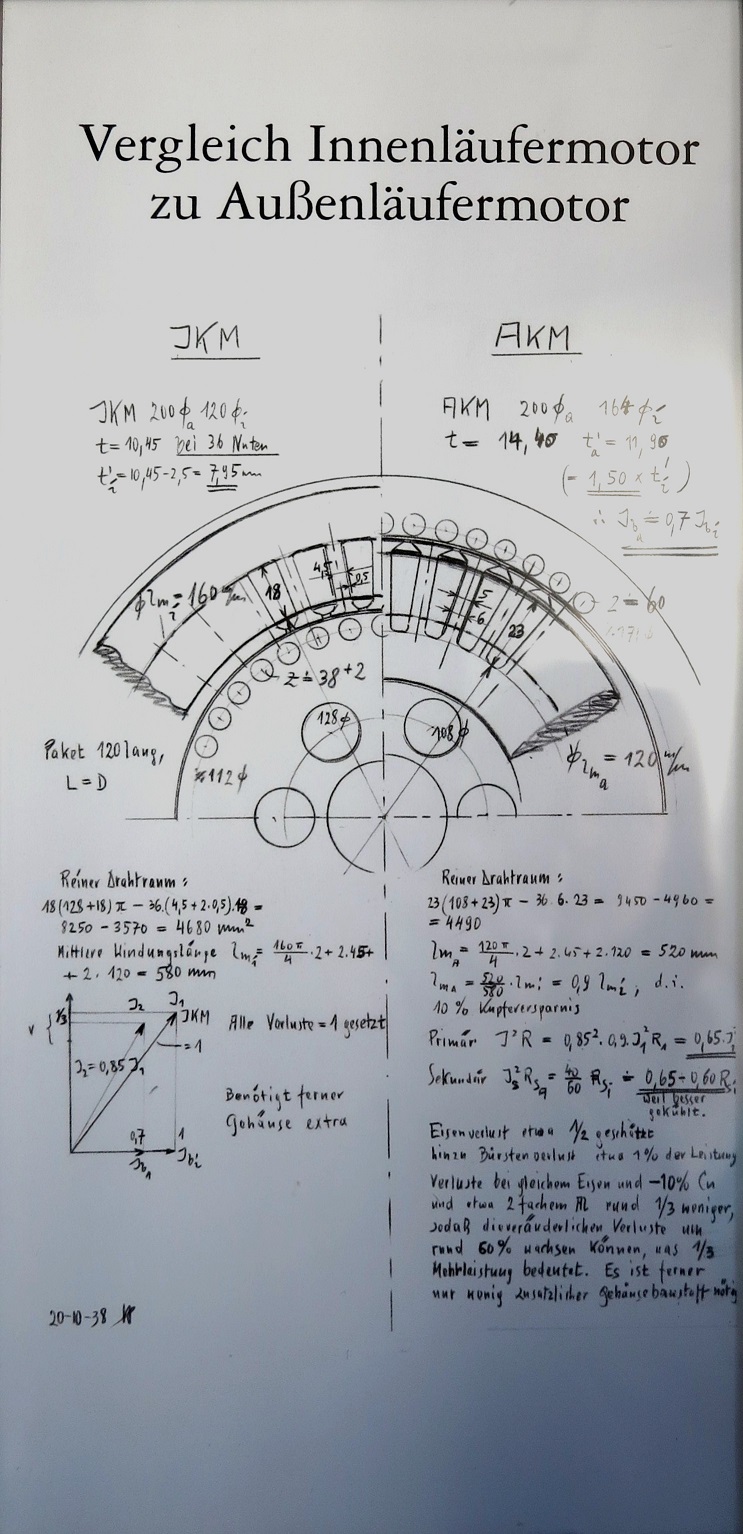 Vergleich Innenläufermotor
zu Außenläufermotor
JKM
JKM 200ϕa 120ϕi
t = 10,45 bei 36 Nuten
t'i = 10,45-2,5 = 7,95 mm
AKM
AKM 200ϕa 164ϕi
t = 14,40 t'a = 11,90
(= 1,50 x t'i)
∴ Jba ≐ 0,7 Jbi
ϕlmi = 160 m/m
18
4,5
0,5
z ≐ 38+2
128ϕ
≈112ϕ
5
6
23
z ≐ 60
108ϕ
ϕlma = 120 m/m
Paket 120 lang,
L = D
Reiner Drahtraum:
18(128+18)π − 36.(4,5+2.0,5).18 =
8250 − 3570 = 4680 mm²
Mittlere Windungslänge lmi = 160π/4 . 2 + 2.45 +
+ 2. 120 = 580 mm
v { 1/3
J2
J1
JKM
= 1
J2 = 0,85 J1
0,7
1
Jb1
Jbi
Alle Verluste = 1 gesetzt
Benötigt ferner
Gehäuse extra
20-10-38
Reiner Drahtraum:
23(108+23)π − 36. 6. 23 = 9450 − 4960 =
= 4490
lmA = 120π/4 . 2 + 2.45 + 2.120 = 520 mm
lmA = 520/580 . lmi = 0,9 lmi, d.i.
10 % Kupferersparnis
Primär J²R = 0,85². 0,9. J1²R1 = 0,65. J
Sekundär = 40/60 RSi ≐ 0,65-0,60 RSi
weil besser
gekühlt.
Eisenverlust etwa 1/2 geschätzt
hinzu Bürstenverlust etwa 1% der Leistung
Verluste bei gleichem Eisen und −10% Cu
und etwa 2fachem Al rund 1/3 weniger,
sodaß die veränderlichen Verluste um
rund 60% wachsen können, was 1/3
Mehrleistung bedeutet. Es ist ferner
nur wenig zusätzlicher Gehäusebaustoff nötig